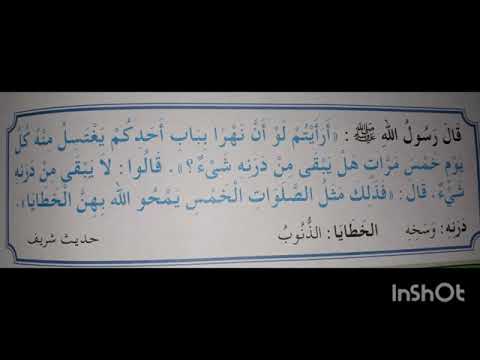 قَالَ رَسُولُ اللهِ ﷺ : «أَرَأَيْتُمْ لَوْ أَنَّ نَهْرًا بِبَابِ أَحَدِكُمْ يَغْتَسِلُ مِنْهُ كُلَّ
يَوْمٍ خَمْسَ مَرَّاتٍ هَلْ يَبْقَى مِنْ دَرَنِهِ شَيْءٌ؟». قَالُوا : لَا يَبْقَى مِنْ دَرَنِهِ
شَيْءٌ. قَالَ : «فَذَلِكَ مَثَلُ الصَّلَوَاتِ الْخَمْسِ يَمْحُو اللهُ بِهِنَّ الْخَطَايَا».
دَرَنِهِ: وَسَخِهِ الخَطَايَا: الذُّنُوبُ حديث شريف
InShOt